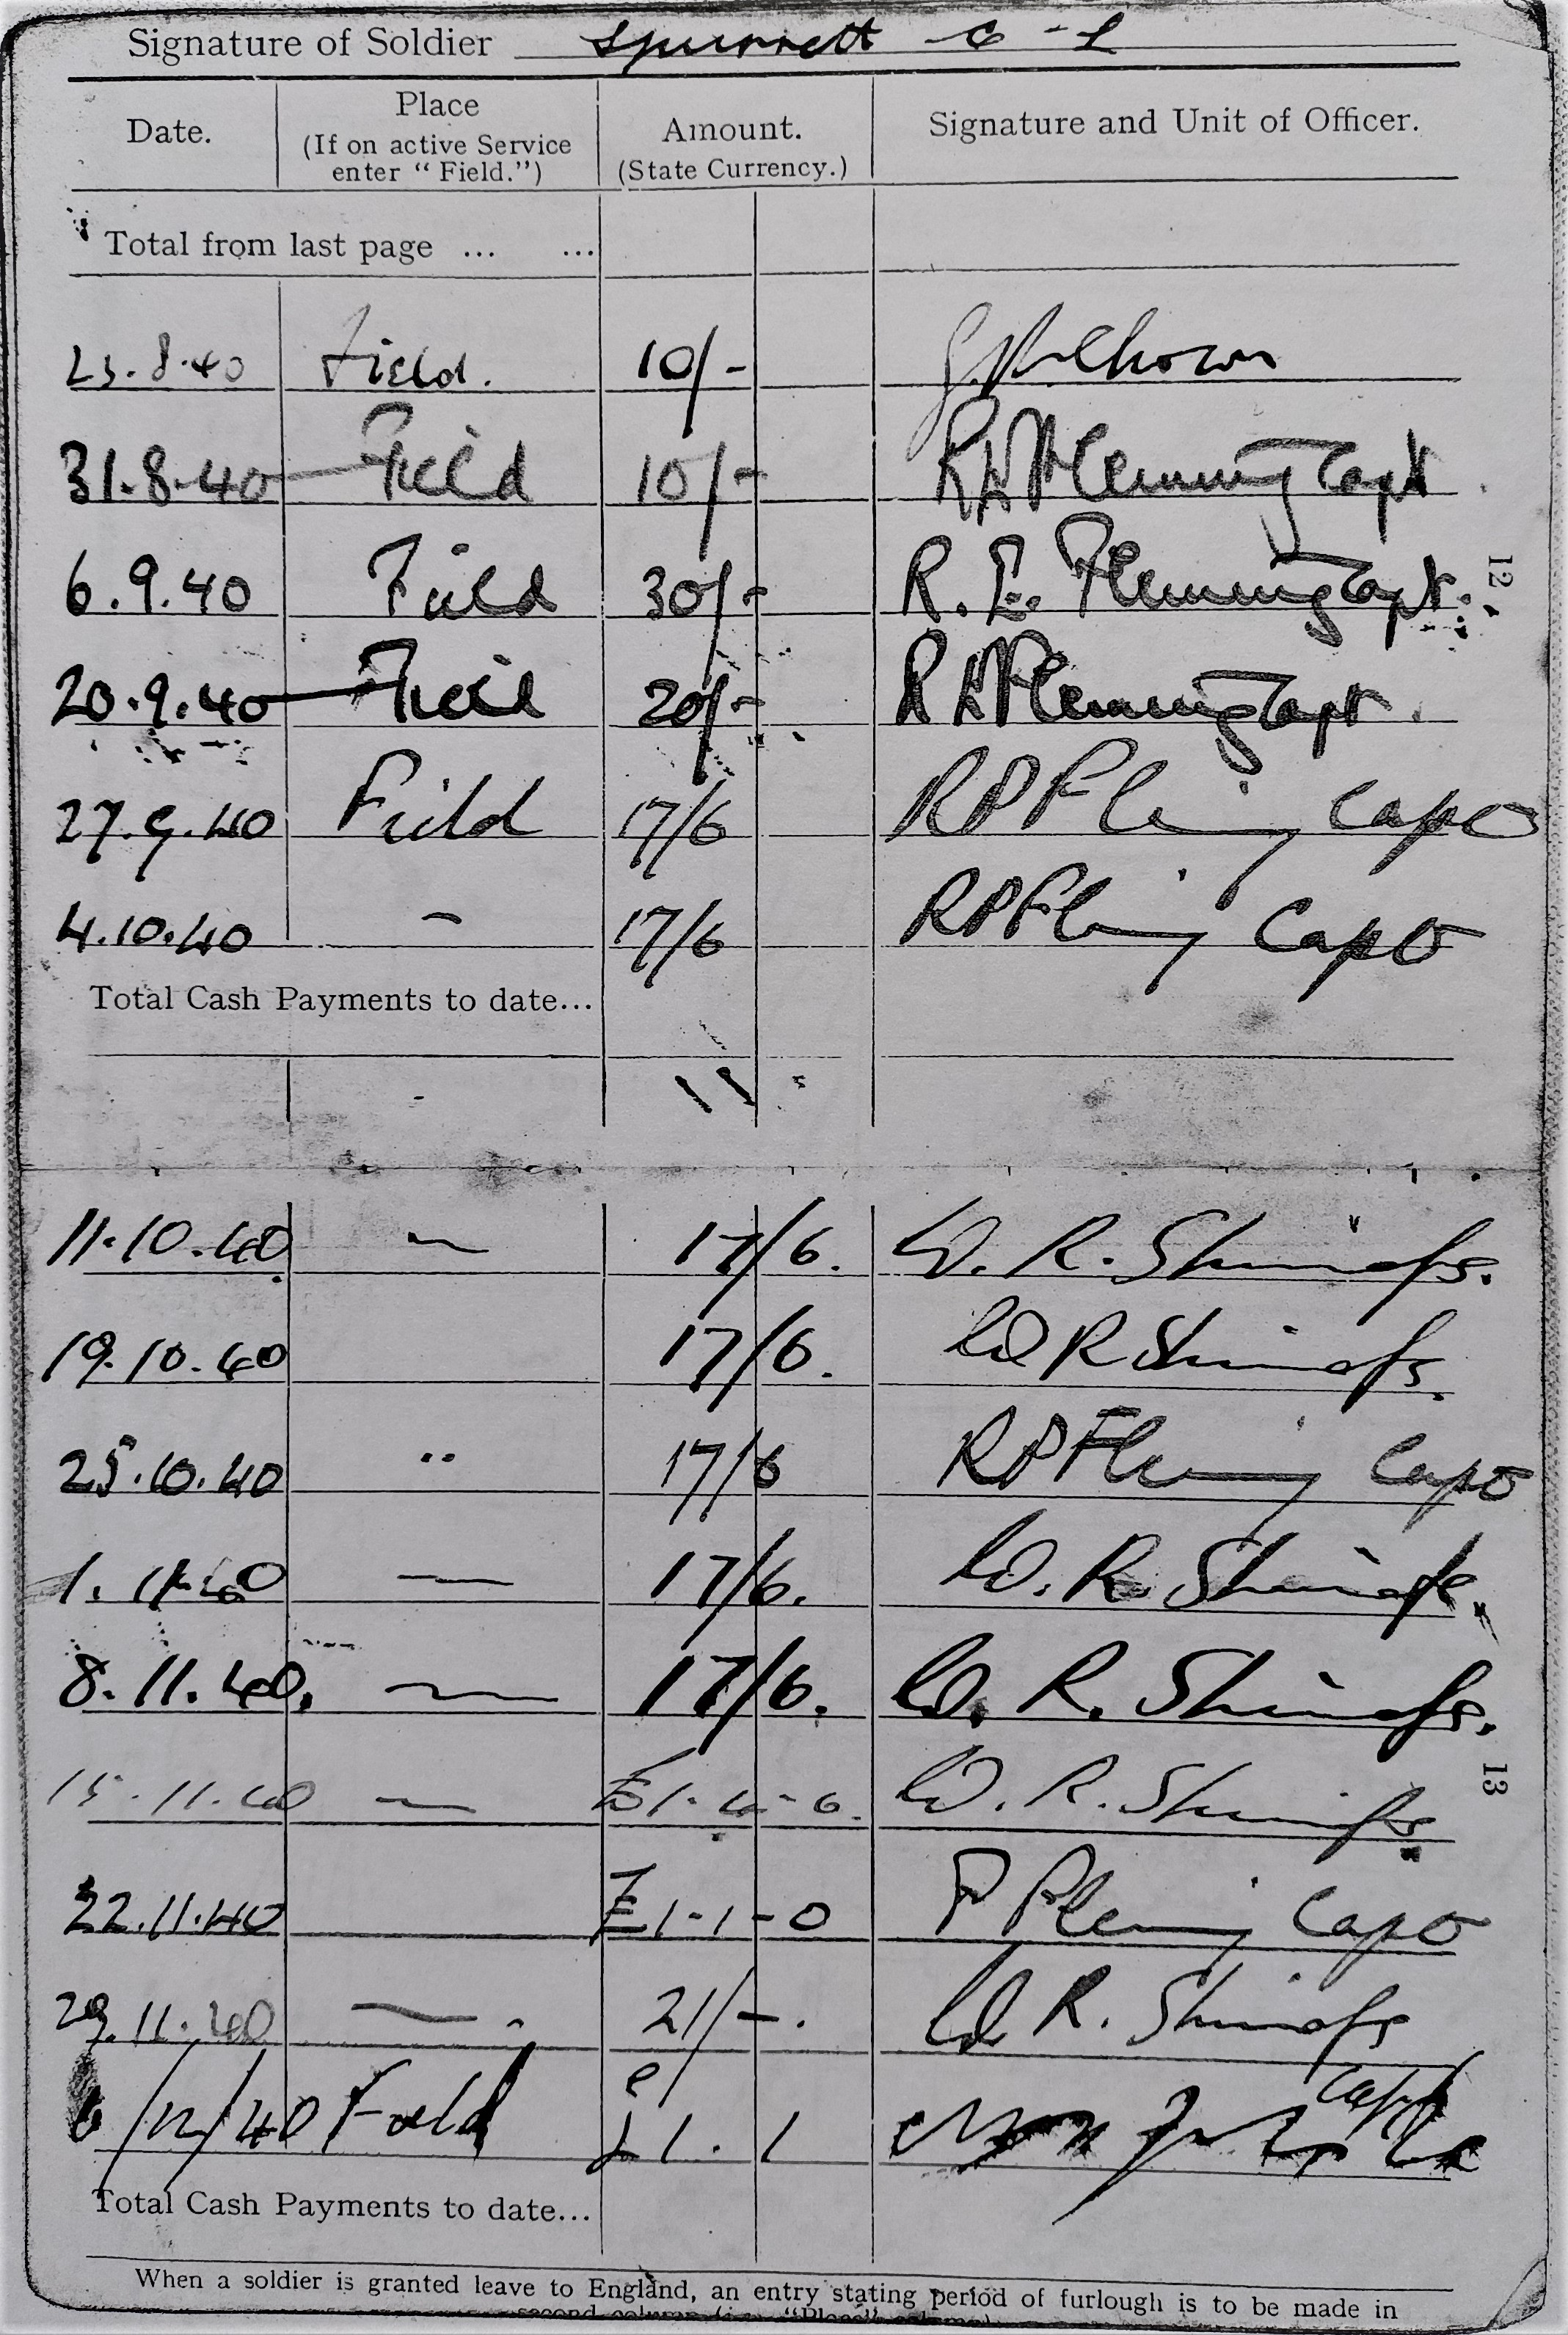 Signature of Soldier Spurrett C-L
Date. Place (If on active Service enter “Field.”) Amount. (State Currency.) Signature and Unit of Officer.
Total from last page ... ...
23.8.40 Field. 10/-
31.8.40 Field 10/- Flemming Capt
6.9.40 Field 30/- R. E. Flemming Capt.
20.9.40 Field 20/- Flemming Capt.
27.9.40 Field 17/6 RP Fleming Capt
4.10.40 – 17/6 RP Fleming Capt
12
Total Cash Payments to date...
11.10.40 – 17/6. W. R. Shinafs.
19.10.40 17/6. W R Shinafs.
25.10.40 " 17/6 RP Fleming Capt
1.11.40 — 17/6. W. R. Shinafs.
8.11.40. — 17/6. W. R. Shinafs.
15.11.40 — £1-4-6. W. R. Shinafs.
13
22.11.40 £1-1-0 P Fleming Capt
29.11.40 — . 21/-. W R. Shinafs
6/12/40 Field £1.1 Capt
Total Cash Payments to date...
When a soldier is granted leave to England, an entry stating period of furlough is to be made in
second column (i.e., “Place” column)